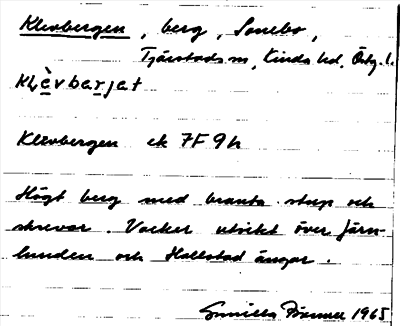 Klevbergen, berg, Sonebo,
Tjärstads sn, Kinda hd, Östg. l.
Klèvbarjat
Klevbergen ek 7F 9h
Högt berg med branta stup och
skrevor. Vacker utsikt över Järn-
lunden och Hallstad ängar.
Gunilla 1965